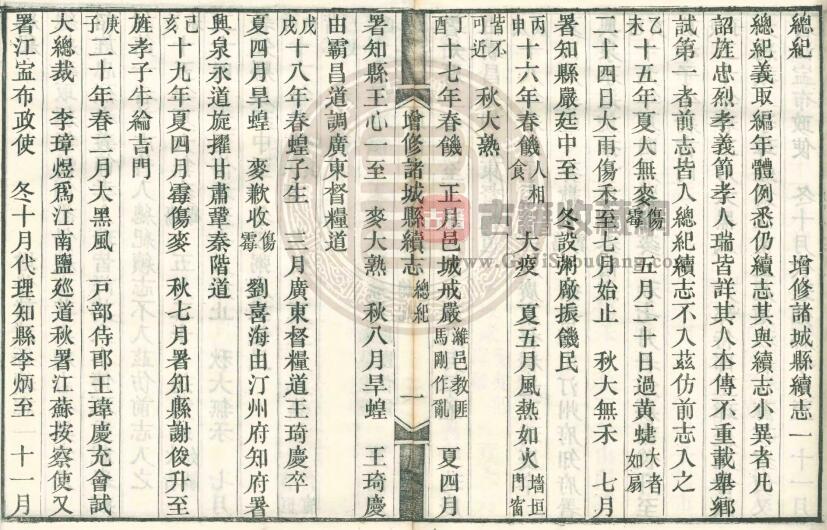 總紀 增修諸城縣續志一
總紀義取編年體例悉仍續志其與續志小異者凡
詔旌忠烈孝義節孝人瑞皆詳其人本傳不重載舉鄉
試第一者前志皆入總紀續志不入茲仿前志入之
乙未十五年夏大無麥霉傷 五月二十日過黃蜨大者如扇
二十四日大雨傷禾至七月始止 秋大無禾 七月
署知縣嚴廷中至 冬設粥廠振饑民
丙申十六年春饑人相食 大疫 夏五月風熱如火墻垣門窗
皆不可近 秋大熟
丁酉十七年春饑 正月邑城戒嚴濰邑教匪馬剛作亂 夏四月
增修諸城縣續志 總紀 一
署知縣王心一至 麥大熟 秋八月旱蝗 王琦慶
由霸昌道調廣東督糧道
戊戌十八年春蝗子生 三月廣東督糧道王琦慶卒
夏四月旱蝗 麥歉收霉傷 劉喜海由汀州府知府署
興泉永道旋擢甘肅鞏秦階道
己亥十九年夏四月霉傷麥 秋七月署知縣謝俊升至
旌孝子牛綸吉門
庚子二十年春三月大黑風 戸部侍郎王瑋慶充會試
大總裁 李璋煜爲江南鹽廵道秋署江蘇按察使又
署江寍布政使 冬十月代理知縣李炳至 十一月
古籍
古籍收藏网
www.GuJiShouCang.com